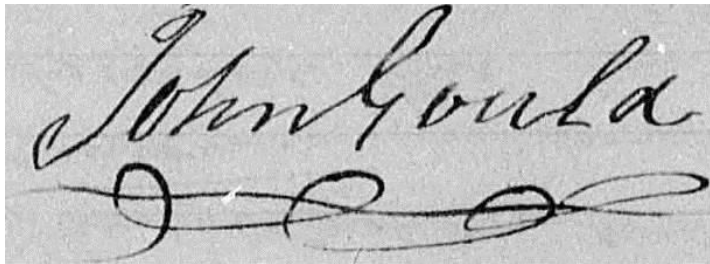 John Gould